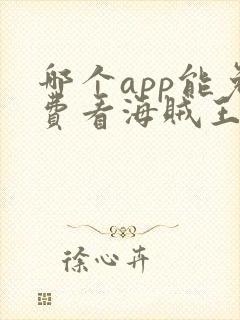 哪个app能免
费看海贼王
徐心卉